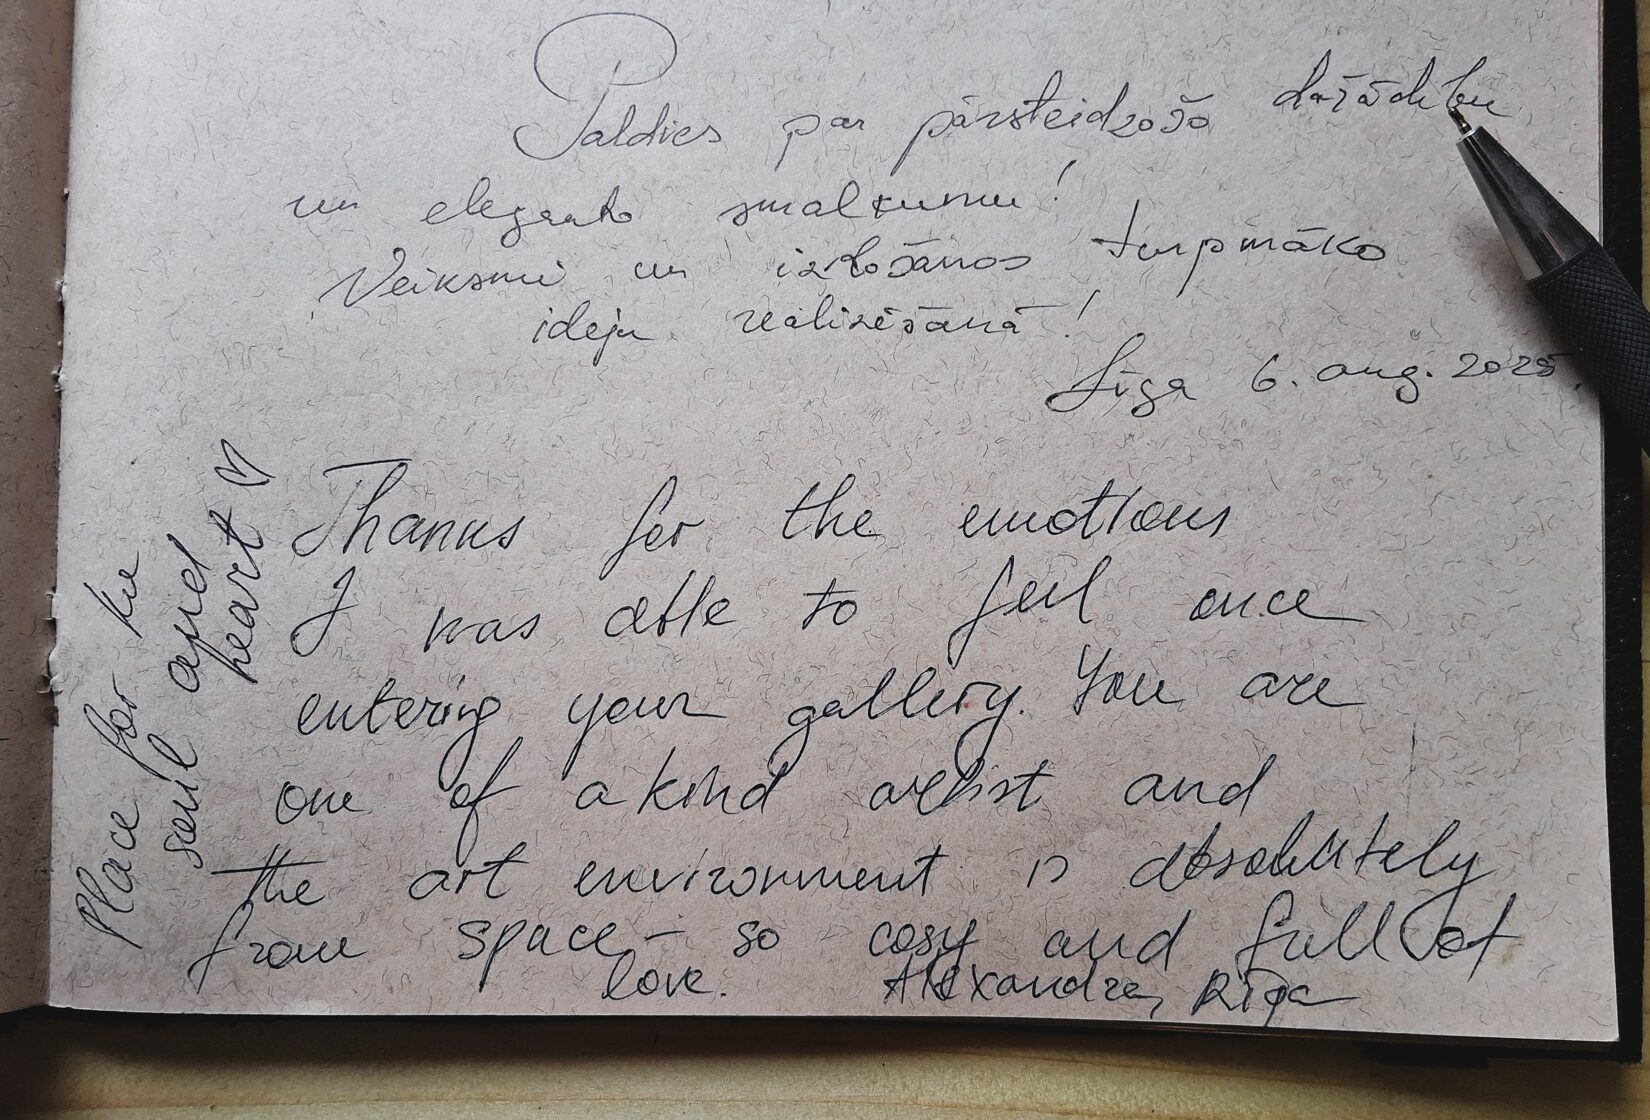 Paldies par pārsteidzošo dažādību
un eleganto smalkumu!
Veiksmi un izdošanos turpmāko
ideju realizēšanā!
Līga 6. aug. 2025.
Thanks for the emotions
I was able to feel once
entering your gallery. You are
one of a kind artist and
the art environment is absolutely
from space – so cosy and full of
love. Alexandra, Rīga
Place for the
soul and
heart ♡